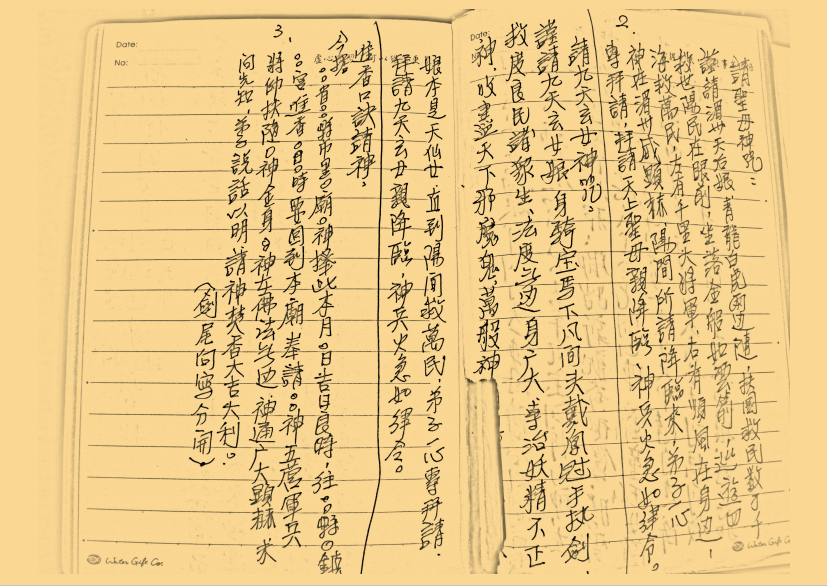 2.
請聖母神咒：
謹請湄州天后娘 青龍白虎兩邊隨，扶國救民數千千
救世陽民在眼前，坐落金船如雲前，巡遊四
海救萬民，左有千里大將軍，右有順風在身边，
神在湄州威顯赫 陽間所請降臨來，弟子一心
專拜請，拜請天上聖母親降臨，神兵火急如律令。
請九天玄女神咒：
謹請九天玄女娘 身騎宝馬下凡间 头戴凰冠手执劍，
救度良民諸眾生，法度無边身广大 專治妖精不正
神，收盡天下邪魔鬼萬般神
娘本是天仙女 直到陽間救萬民，弟子一心專拜請，
拜請九天玄女親降臨，神兵火急如律令。
3.
唯香口訣請神，
今據
○省○縣市里○廟○神擇此本月○日吉日良時，往○○縣○鎮
○宮唯香○日○時要回到本廟奉請○○神五营軍兵
將帥扶随○神金身○神左佛法無边 神通广大顯赫 求
问先知，弟子說話以明 請神焚香大吉大利。
（劍尾向寫分開）
Date:
No:
Date:
Winter Gift Co.
Winter Gift Co.